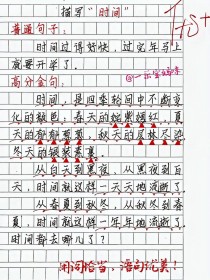 描写“时间”
普通句子：
时间过得好快，过完年马上
就要开学了。
高分金句：
时间，是四季轮回中不断变
化的颜色：春天的姹紫嫣红，夏
天的郁郁葱葱，秋天的层林尽染，
冬天的银装素裹。
从白天到黑夜，从黑夜到白
天，时间就这样一天天地流逝了；
从春夏到秋冬，从秋冬到春
夏，时间就这样一年年地流逝了，
时间都去哪儿了？
用词恰当，语句优美！